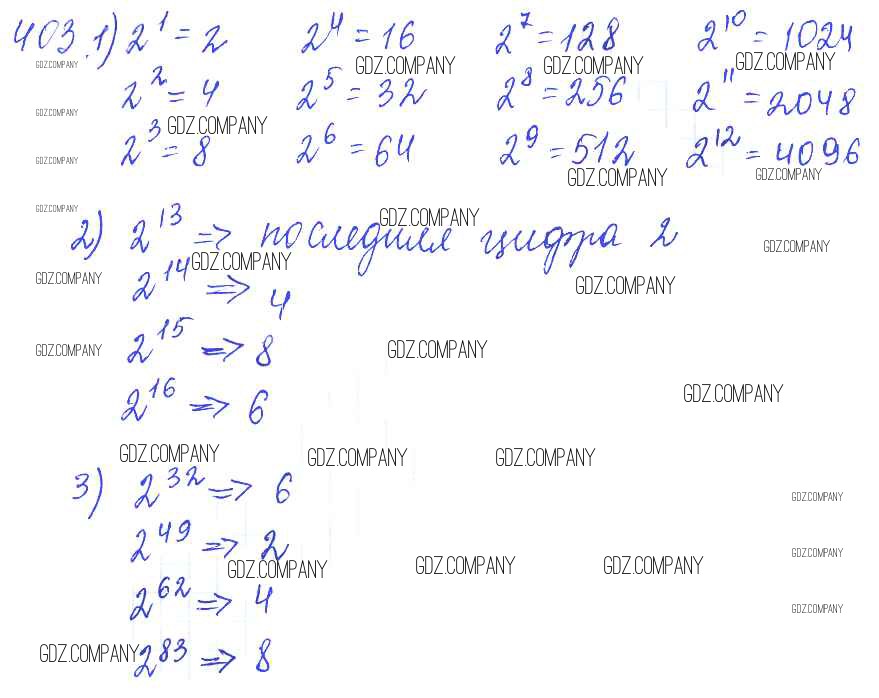 403. 1) 2^1 = 2 2^4 = 16 2^7 = 128 2^10 = 1024
GDZ.COMPANY GDZ.COMPANY GDZ.COMPANY GDZ.COMPANY
2^2 = 4 2^5 = 32 2^8 = 256 2^11 = 2048
GDZ.COMPANY GDZ.COMPANY
2^3 = 8 2^6 = 64 2^9 = 512 2^12 = 4096
GDZ.COMPANY GDZ.COMPANY GDZ.COMPANY
GDZ.COMPANY GDZ.COMPANY
2) 2^13 => последняя цифра 2
GDZ.COMPANY GDZ.COMPANY
2^14 => 4
GDZ.COMPANY GDZ.COMPANY
2^15 => 8
GDZ.COMPANY GDZ.COMPANY
2^16 => 6
GDZ.COMPANY
GDZ.COMPANY GDZ.COMPANY GDZ.COMPANY
3) 2^32 => 6
GDZ.COMPANY
2^49 => 2
GDZ.COMPANY
GDZ.COMPANY GDZ.COMPANY GDZ.COMPANY
2^62 => 4
GDZ.COMPANY
2^83 => 8
GDZ.COMPANY